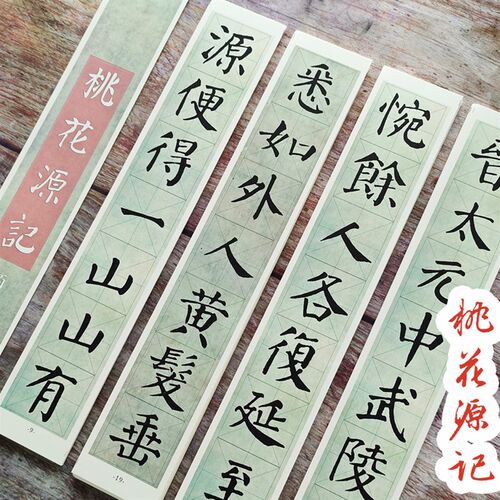 桃花源記
源便得一山山有
-9-
悉如外人黄髮垂
-19-
惋餘人各復延至
太元中武陵
桃花源记